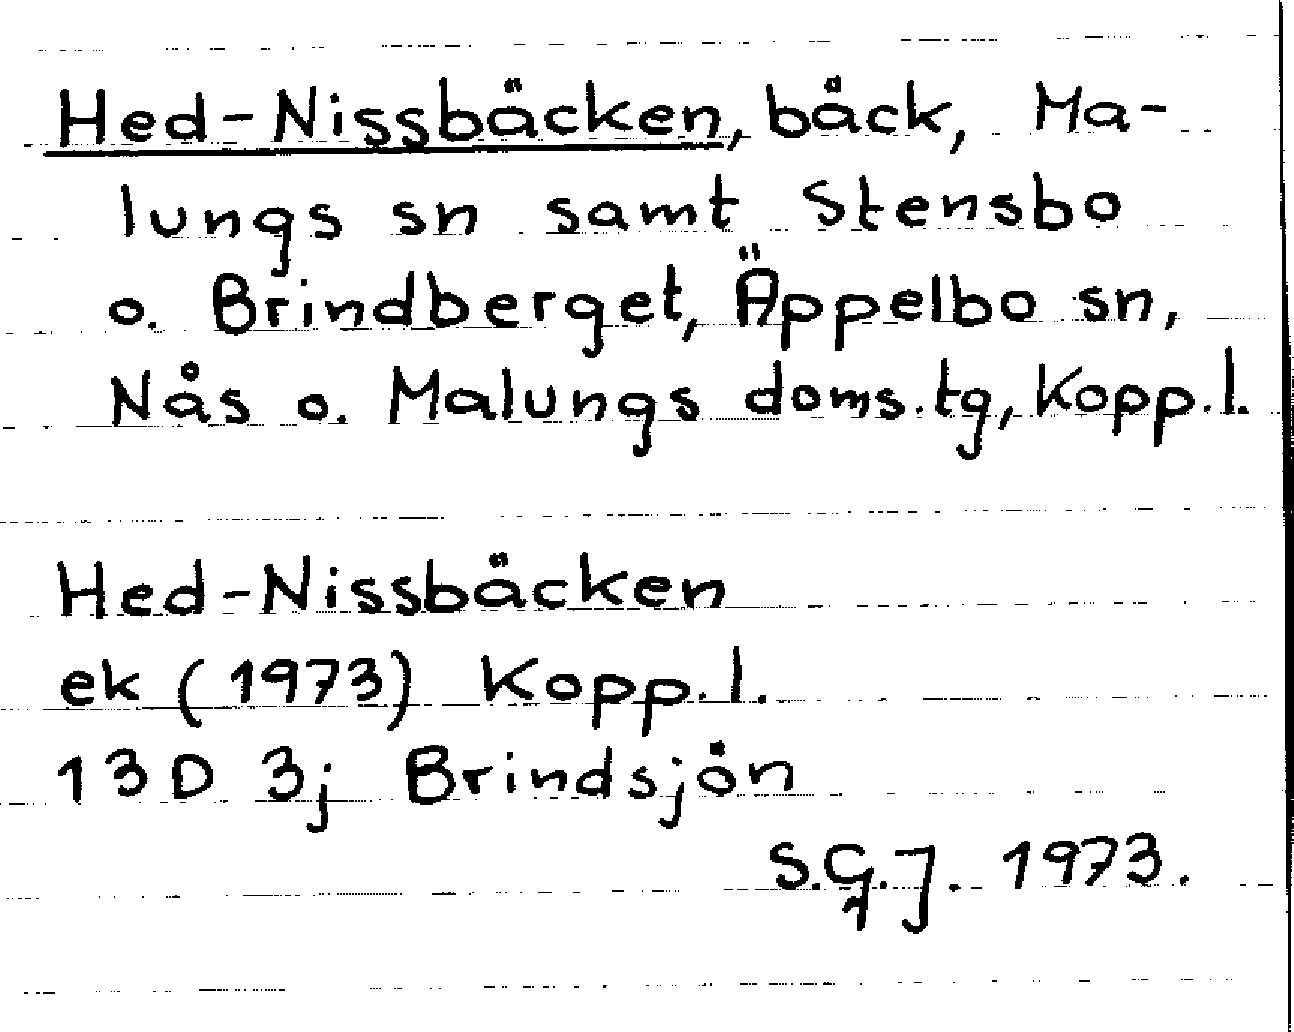 Hed-Nissbäcken, bäck, Ma-
lungs sn samt Stensbo
o. Brindberget, Äppelbo sn,
Nås o. Malungs doms.tg, Kopp.l.
Hed-Nissbäcken
ek (1973) Kopp.l.
13D 3j Brindsjön
S.G.J. 1973.